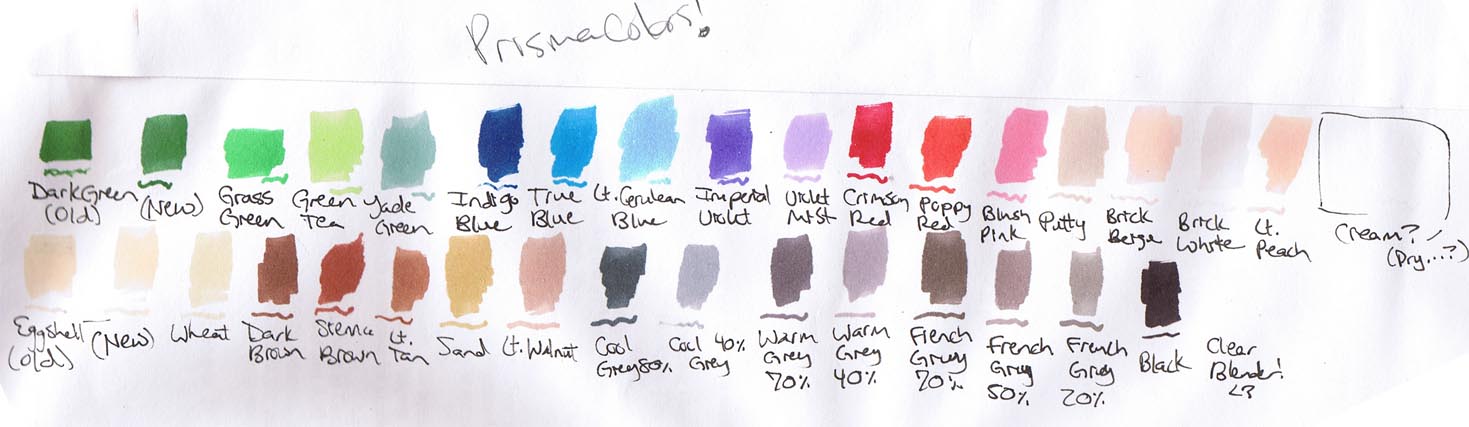 PrismaColors!
Dark Green (Old)
(New)
Grass Green
Green Tea
Jade Green
Indigo Blue
True Blue
Lt. Cerulean Blue
Imperial Violet
Violet Mist
Crimson Red
Poppy Red
Blush Pink
Putty
Brick Beige
Brick White
Lt. Peach
Cream? (Dry...?)
Eggshell (Old)
(New)
Wheat
Dark Brown
Sienna Brown
Lt. Tan
Sand
Lt. Walnut
Cool Grey 80%
Cool 40% Grey
Warm Grey 70%
Warm Grey 40%
French Grey 70%
French Grey 50%
French Grey 20%
Black
Clear Blender! <3